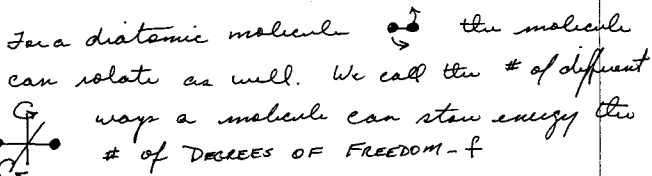 For a diatomic molecule the molecule
can rotate as well. We call the # of different
ways a molecule can store energy the
# of DEGREES OF FREEDOM - f